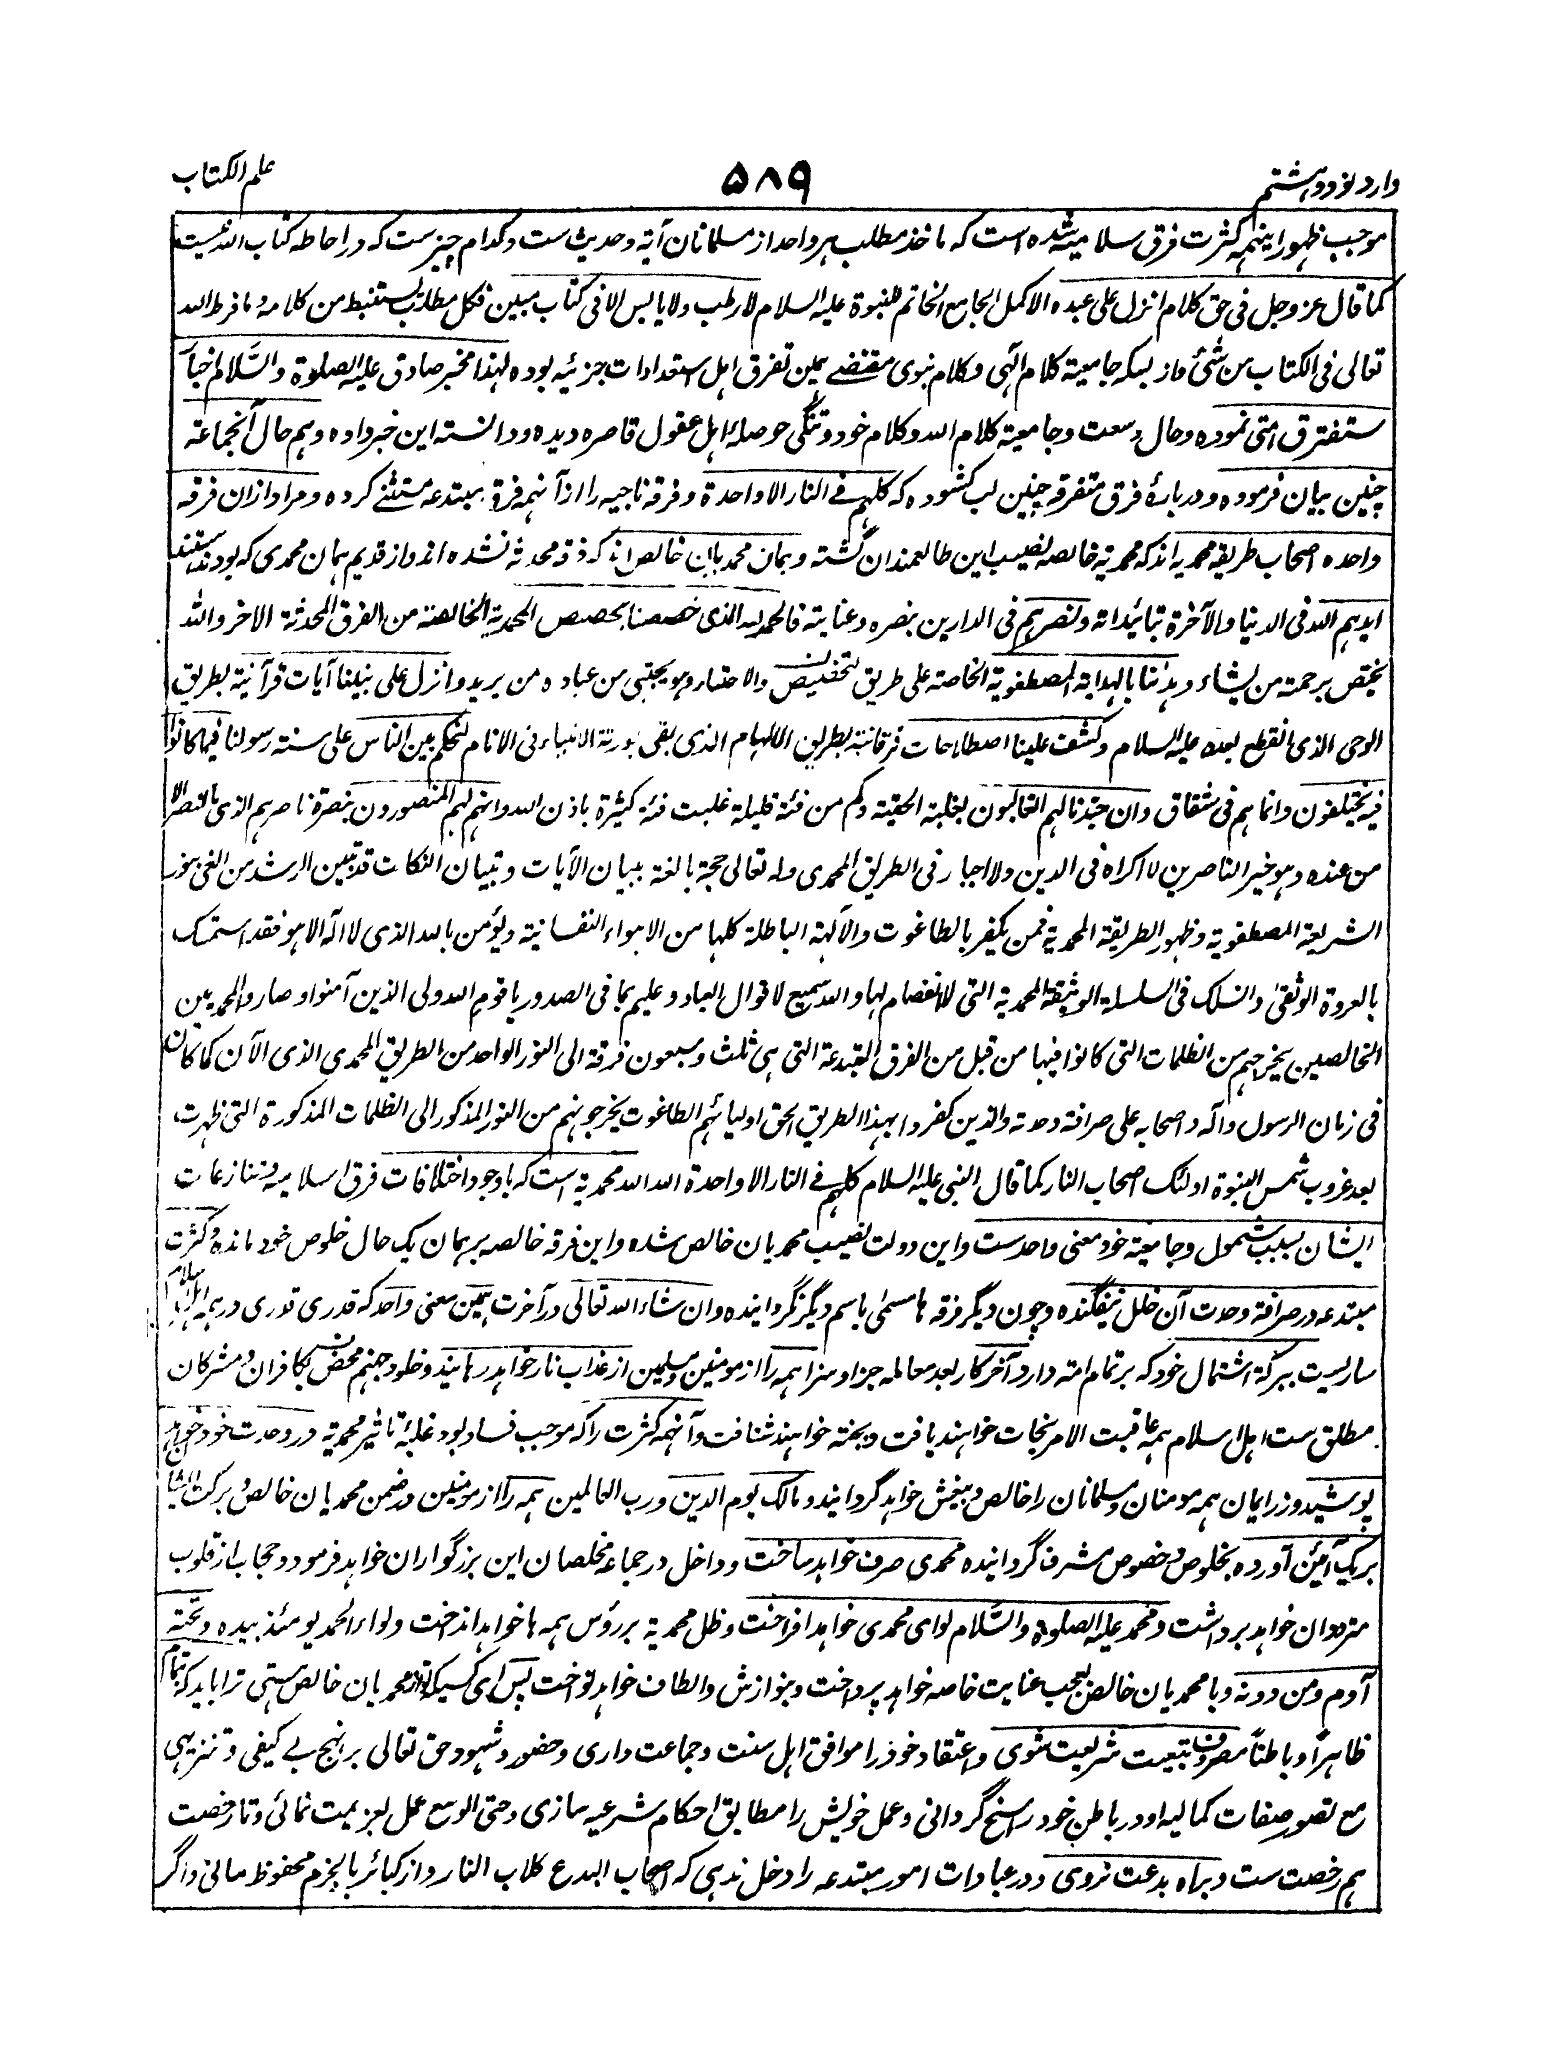 وارد نود و هشتم
۵۸۹
علم الکتاب
موجب ظهور اینهمه کثرت فرق سلامیه شده است که ماخذ مطلب هر واحد از مسلمانان آیة و حدیث ست و کدام چیز ست که در احاطه کتاب الله نیست
کما قال عز و جل فی حق کلام انزل علی عبده الاکمل الجامع الخاتم للنبوة علیه السلام لا رطب ولا یابس الا فی کتاب مبین فکل مطلب یستنبط من کلامه و ما فرط الله
تعالی فی الکتاب من شئ و از بسکه جامعیة کلام آلهی و کلام نبوی مقتضے همین تفرق اهل استعدادات جزئیه بوده لهذا مخبر صادق علیه الصلوة والسّلام اخبار
ستفترق امتی نموده و حال وسعت و جامعیة کلام الله و کلام خود و تنگی حوصلهٔ اهل عقول قاصره دیده و دانسته این خبر داده و هم حال آنجماعة
چنین بیان فرموده و دربارهٔ فرق متفرقه چنین لب کشوده که کلهم فے النار الا واحدة و فرقه ناجیه را از آنهمه فرق مبتدعه مستثنے کرده و مراد ازان فرقه
واحده اصحاب طریقه محمدیه اند که محمدیة خالصه نصیب این طالعمندان گشته و همان محمدیان خالص اند که فرقه محدثه نشده اند و از قدیم همان محمدی که بودند هستند
ایدهم الله فی الدنیا والآخرة بتائیداته ونصرهم فی الدارین بنصره وعنایته فالحمد لله الذی خصصنا بحصیص المحمدیة الخالصة من الفرق المحدثة الاخر والله
یختص برحمته من یشاء وهدٰنا بالهدایة المصطفویة الخاصة علی طریق التخصیص والاختصار وهو یجتبی من عباده من یرید وانزل علی نبینا آیات قرآنیة بطریق
الوحی الذی انقطع بعده علیه السلام وکشف علینا اصطلاحات فرقانیة بطریق الالهام الذی بقی بورثة الانبیاء فی الانام لتحکم بین الناس علی سنة رسولنا فیما کانوا
فیه یختلفون وانما هم فی شقاق وان جندنا لهم الغالبون بغلبة الحقیة وکم من فئة قلیلة غلبت فئة کثیرة باذن الله وانهم لهم المنصورون بنصرة ناصرهم الذی ما النصر الا
من عنده وهو خیر الناصرین لا اکراه فی الدین ولا اجبار فی الطریق المحمدی وله تعالی حجة بالغة ببیان الآیات وتبیان النکات قد تبین الرشد من الغی بنور
الشریعة المصطفویة وظهور الطریقة المحمدیة فمن یکفر بالطاغوت والآلهة الباطلة کلها من الاهواء النفسانیة ویؤمن بالله الذی لا اله الا هو فقد استمسک
بالعروة الوثقیٰ وانسلک فی السلسلة الوثیقة المحمدیة التی لا انفصام لها والله سمیع لاقوال العباد وعلیم بما فی الصدور یا قوم الله ولی الذین آمنوا وصاروا المحمدیین
الخالصین یخرجهم من الظلمات التی کانوا فیها من قبل من الفرق المبتدعة التی هی ثلث وسبعون فرقة الی النور الواحد من الطریق المحمدی الذی الآن کما کان
فی زمان الرسول وآله واصحابه علی صرافة وحدته والذین کفروا بهذا الطریق الحق اولیائهم الطاغوت یخرجونهم من النور المذکور الی الظلمات المذکورة التی ظهرت
بعد غروب شمس النبوة اولئک اصحاب النار کما قال النبی علیه السلام کلهم فے النار الا واحدة الله الله محمدیة است که باوجود اختلافات فرق اسلامیه و تنازعات
ایشان بسبب شمول و جامعیة خود معنی واحدست و این دولت نصیب محمدیان خالص شده و این فرقه خالصه بر همان یک حال خلوص خود مانده و کثرت
مبتدعه در صرافة وحدت آن خلل نیفگنده و چون دیگر فرقه ها مسمیٰ باسم دیگر نگردانیده و ان شاء الله تعالی در آخرت همین معنی واحد که قدری قدری در همه اهل اسلام
ساریست ببرکة اشتمال خود که بر تمام امة دارد آخر کار بعد معامله جزا و سزا همه را از مومنین و مسلمین از عذاب نار خواهد رهانید و خلود جهنم محض نصیب کافران و مشرکان
مطلق ست اهل اسلام همه عاقبت الامر نجات خواهند یافت و بجنة خواهند شتافت و آنهمه کثرت را که موجب فساد بود غلبهٔ تاثیر محمدیة در وحدت خود خواهد
پوشید و نور ایمان همه مومنان و مسلمانان را خالص و بیغش خواهد گردانید و مالک یوم الدین و رب العالمین همه را از مومنین در ضمن محمدیان خالص و برکت ایشان
بر یک آئین آورده بخلوص و خصوص مشرف گردانیده محمدی صرف خواهد ساخت و داخل در جماعه مخلصان این بزرگواران خواهد فرمود و حجاب از قلوب
مترددان خواهد برداشت و محمد علیه الصلوة والسّلام لوای محمدی خواهد افراخت و ظل محمدیة بر رؤس همه ها خواهد انداخت ولواء الحمد یومئذ بیده وتحته
آدم ومن دونه و با محمدیان خالص بعجب عنایت خاصه خواهد پرداخت و بنوازش و الطاف خواهد نواخت پس ای کسیکه تو از محمدیان خالص هستی ترا باید که تمام
ظاهراً و باطناً مصروف بتبعیت شریعت شوی و اعتقاد خود را موافق اهل سنت و جماعت داری و حضور و شهود حق تعالی بر نهج بے کیفی و تنزیهی
مع تصور صفات کمالیه او در باطن خود راسخ گردانی و عمل خویش را مطابق احکام شرعیه سازی و حتی الوسع عمل بعزیمت نمائی و تا رخصت
هم رخصت ست و براه بدعت نروی و در عبادات امور مبتدعه را دخل ندهی که اصحاب البدع کلاب النار و از کبائر بالجزم محفوظ مانی و اگر